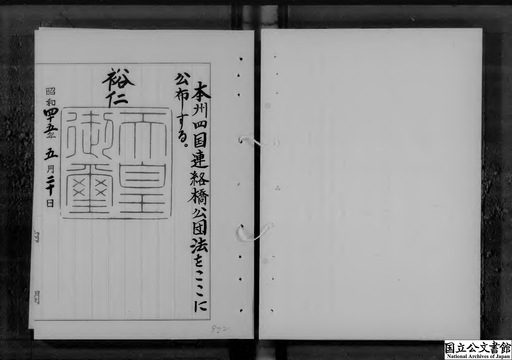 本州四国連絡橋公団法をここに
公布する。
裕仁
天皇
御璽
昭和四十五年五月二十日
国立公文書館
National Archives of Japan